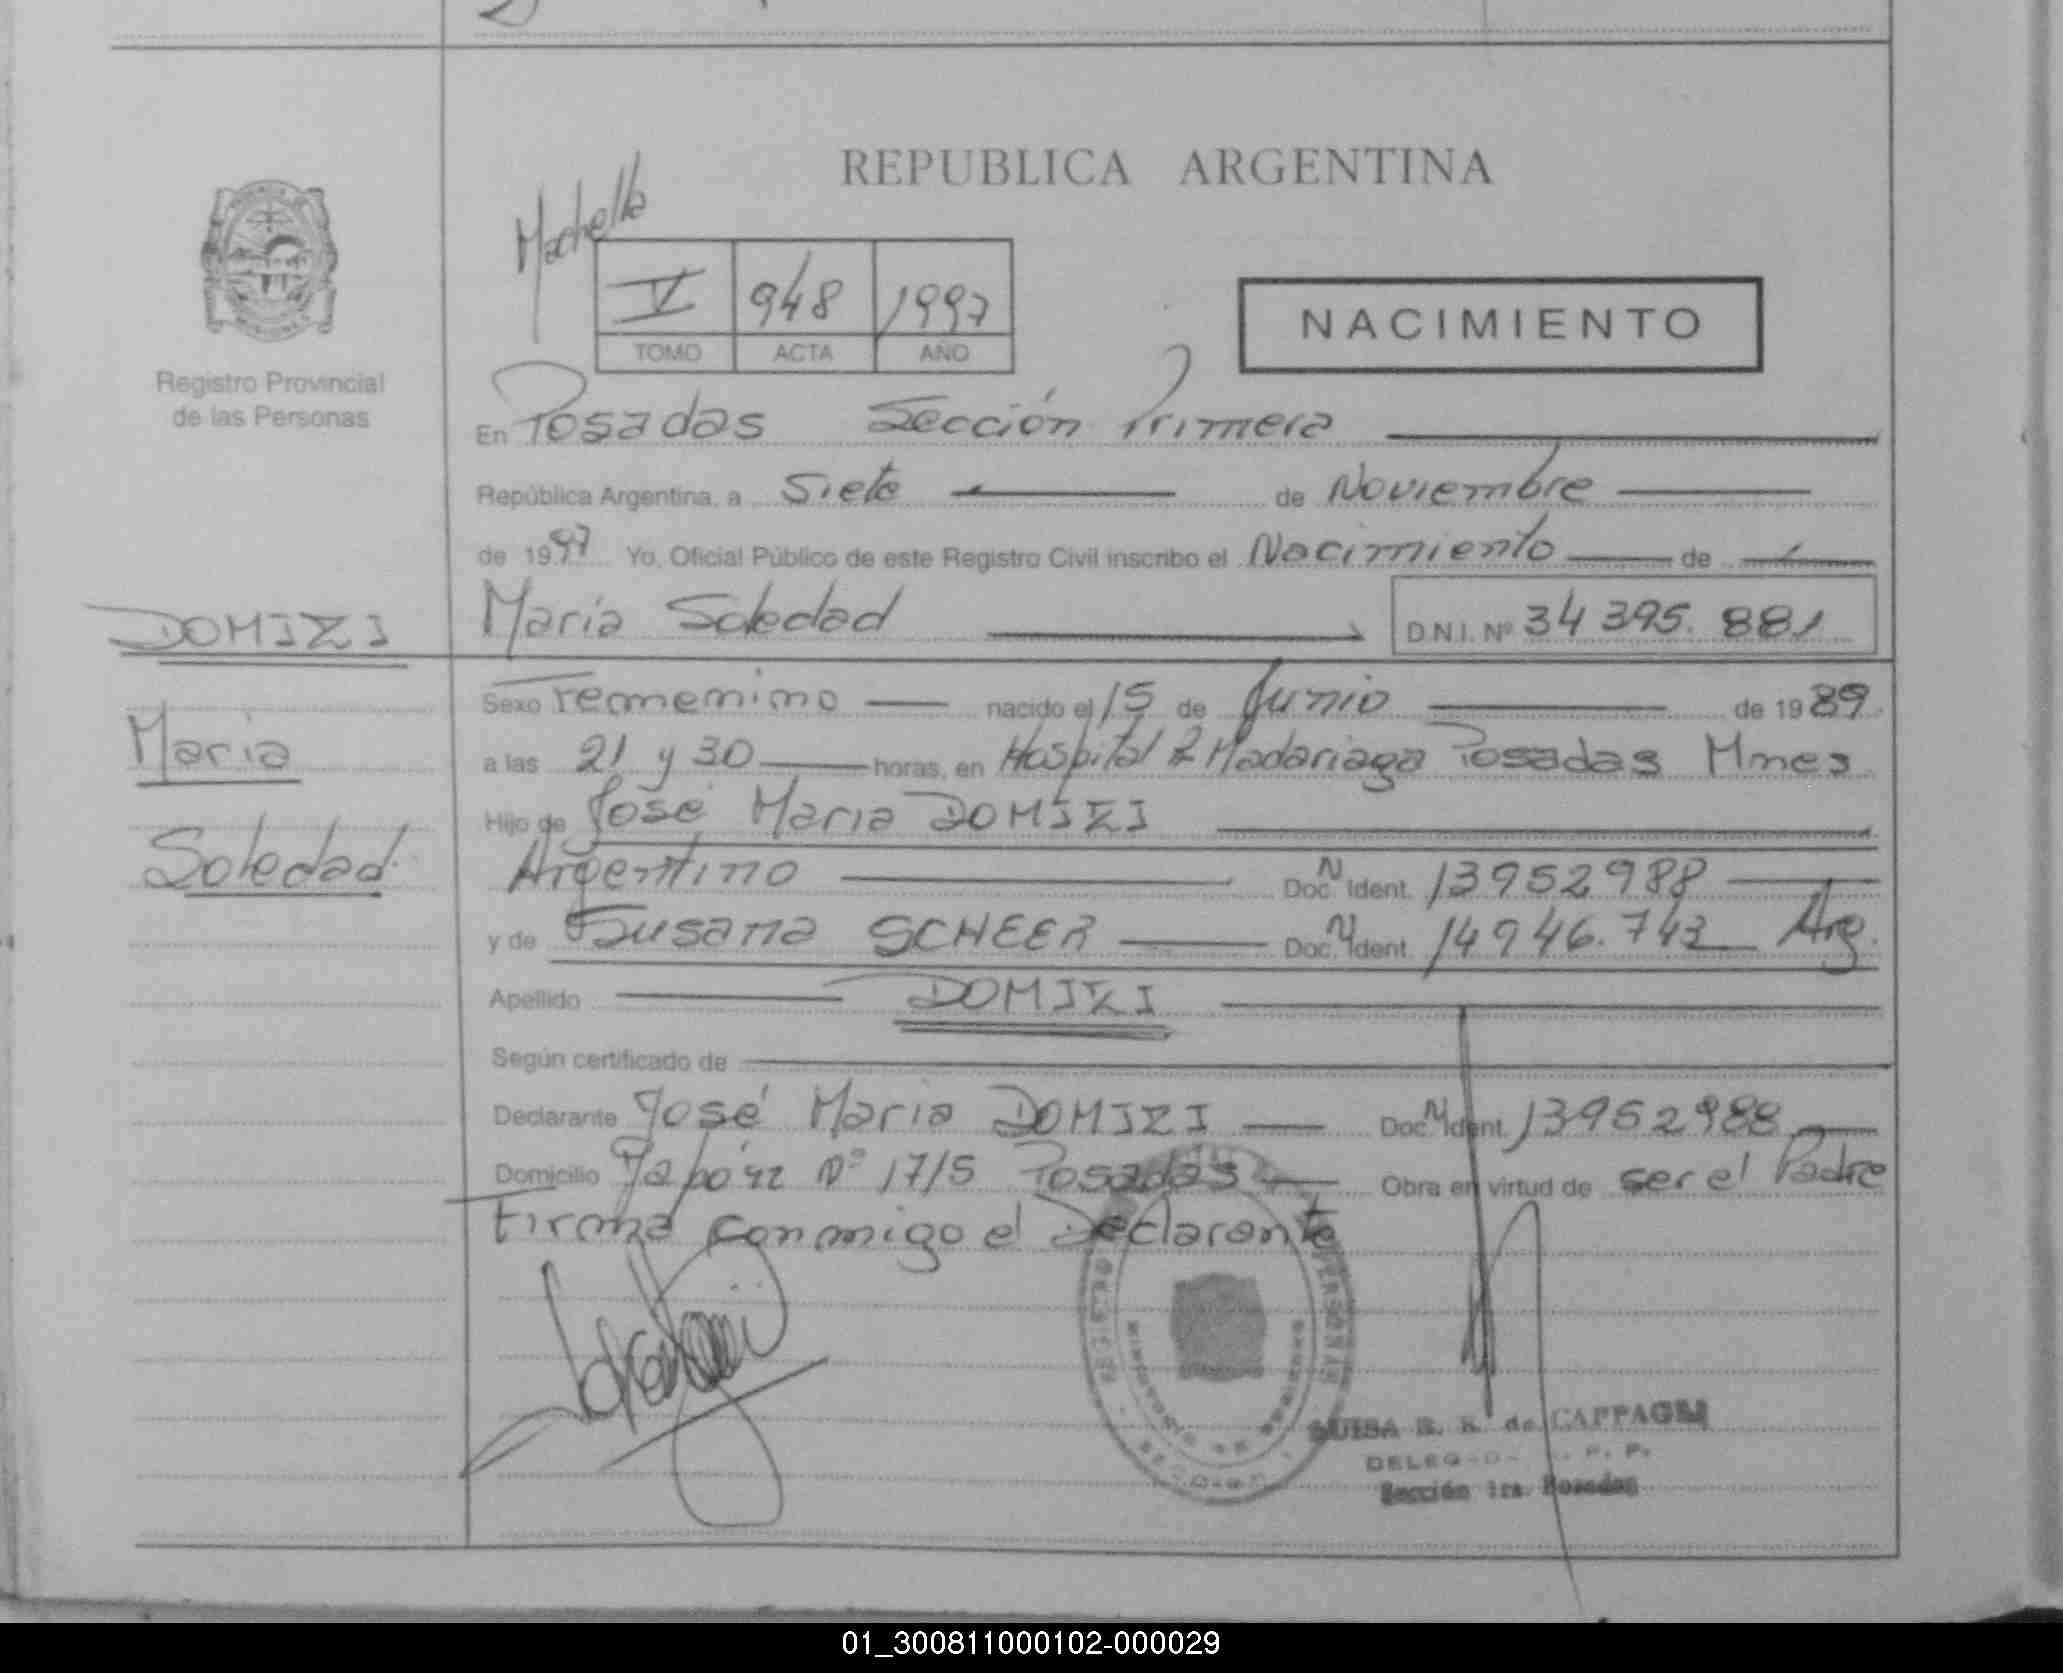 REPUBLICA ARGENTINA
Machella
V 948 1997
TOMO ACTA AÑO
NACIMIENTO
Registro Provincial
de las Personas
En Posadas Sección Primera
República Argentina, a Siete de Noviembre
de 1997 Yo, Oficial Público de este Registro Civil inscribo el Nacimiento de
DOMIZI
María Soledad D.N.I. Nº 34 395. 881
Sexo Femenino nacido el 15 de Junio de 1989
Maria
a las 21 y 30 horas, en Hospital R Madariaga Posadas Mnes
Hijo de José Maria DOMIZI
Soledad
Argentino Doc. N Ident. 13952988
y de Susana SCHEER Doc. N Ident. 14946.743 Arg.
Apellido DOMIZI
Según certificado de
Declarante José Maria DOMIZI Doc. N Ident. 13952988
Domicilio Japón Nº 1715 Posadas Obra en virtud de ser el Padre
Firma conmigo el Declarante
LUISA R. K. de CAPPAGLI
DELEG-D- R. P. P.
Sección 1ra. Posadas
01_300811000102-000029